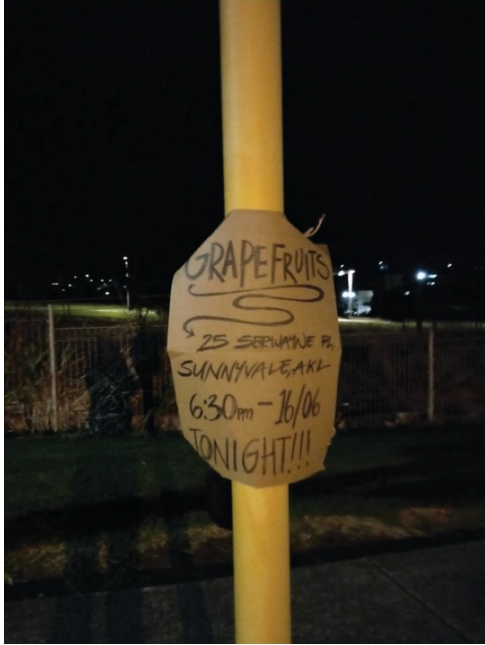 GRAPEFRUITS
25 SERWAYNE PL,
SUNNYVALE, AKL
6:30pm - 16/06
TONIGHT!!!